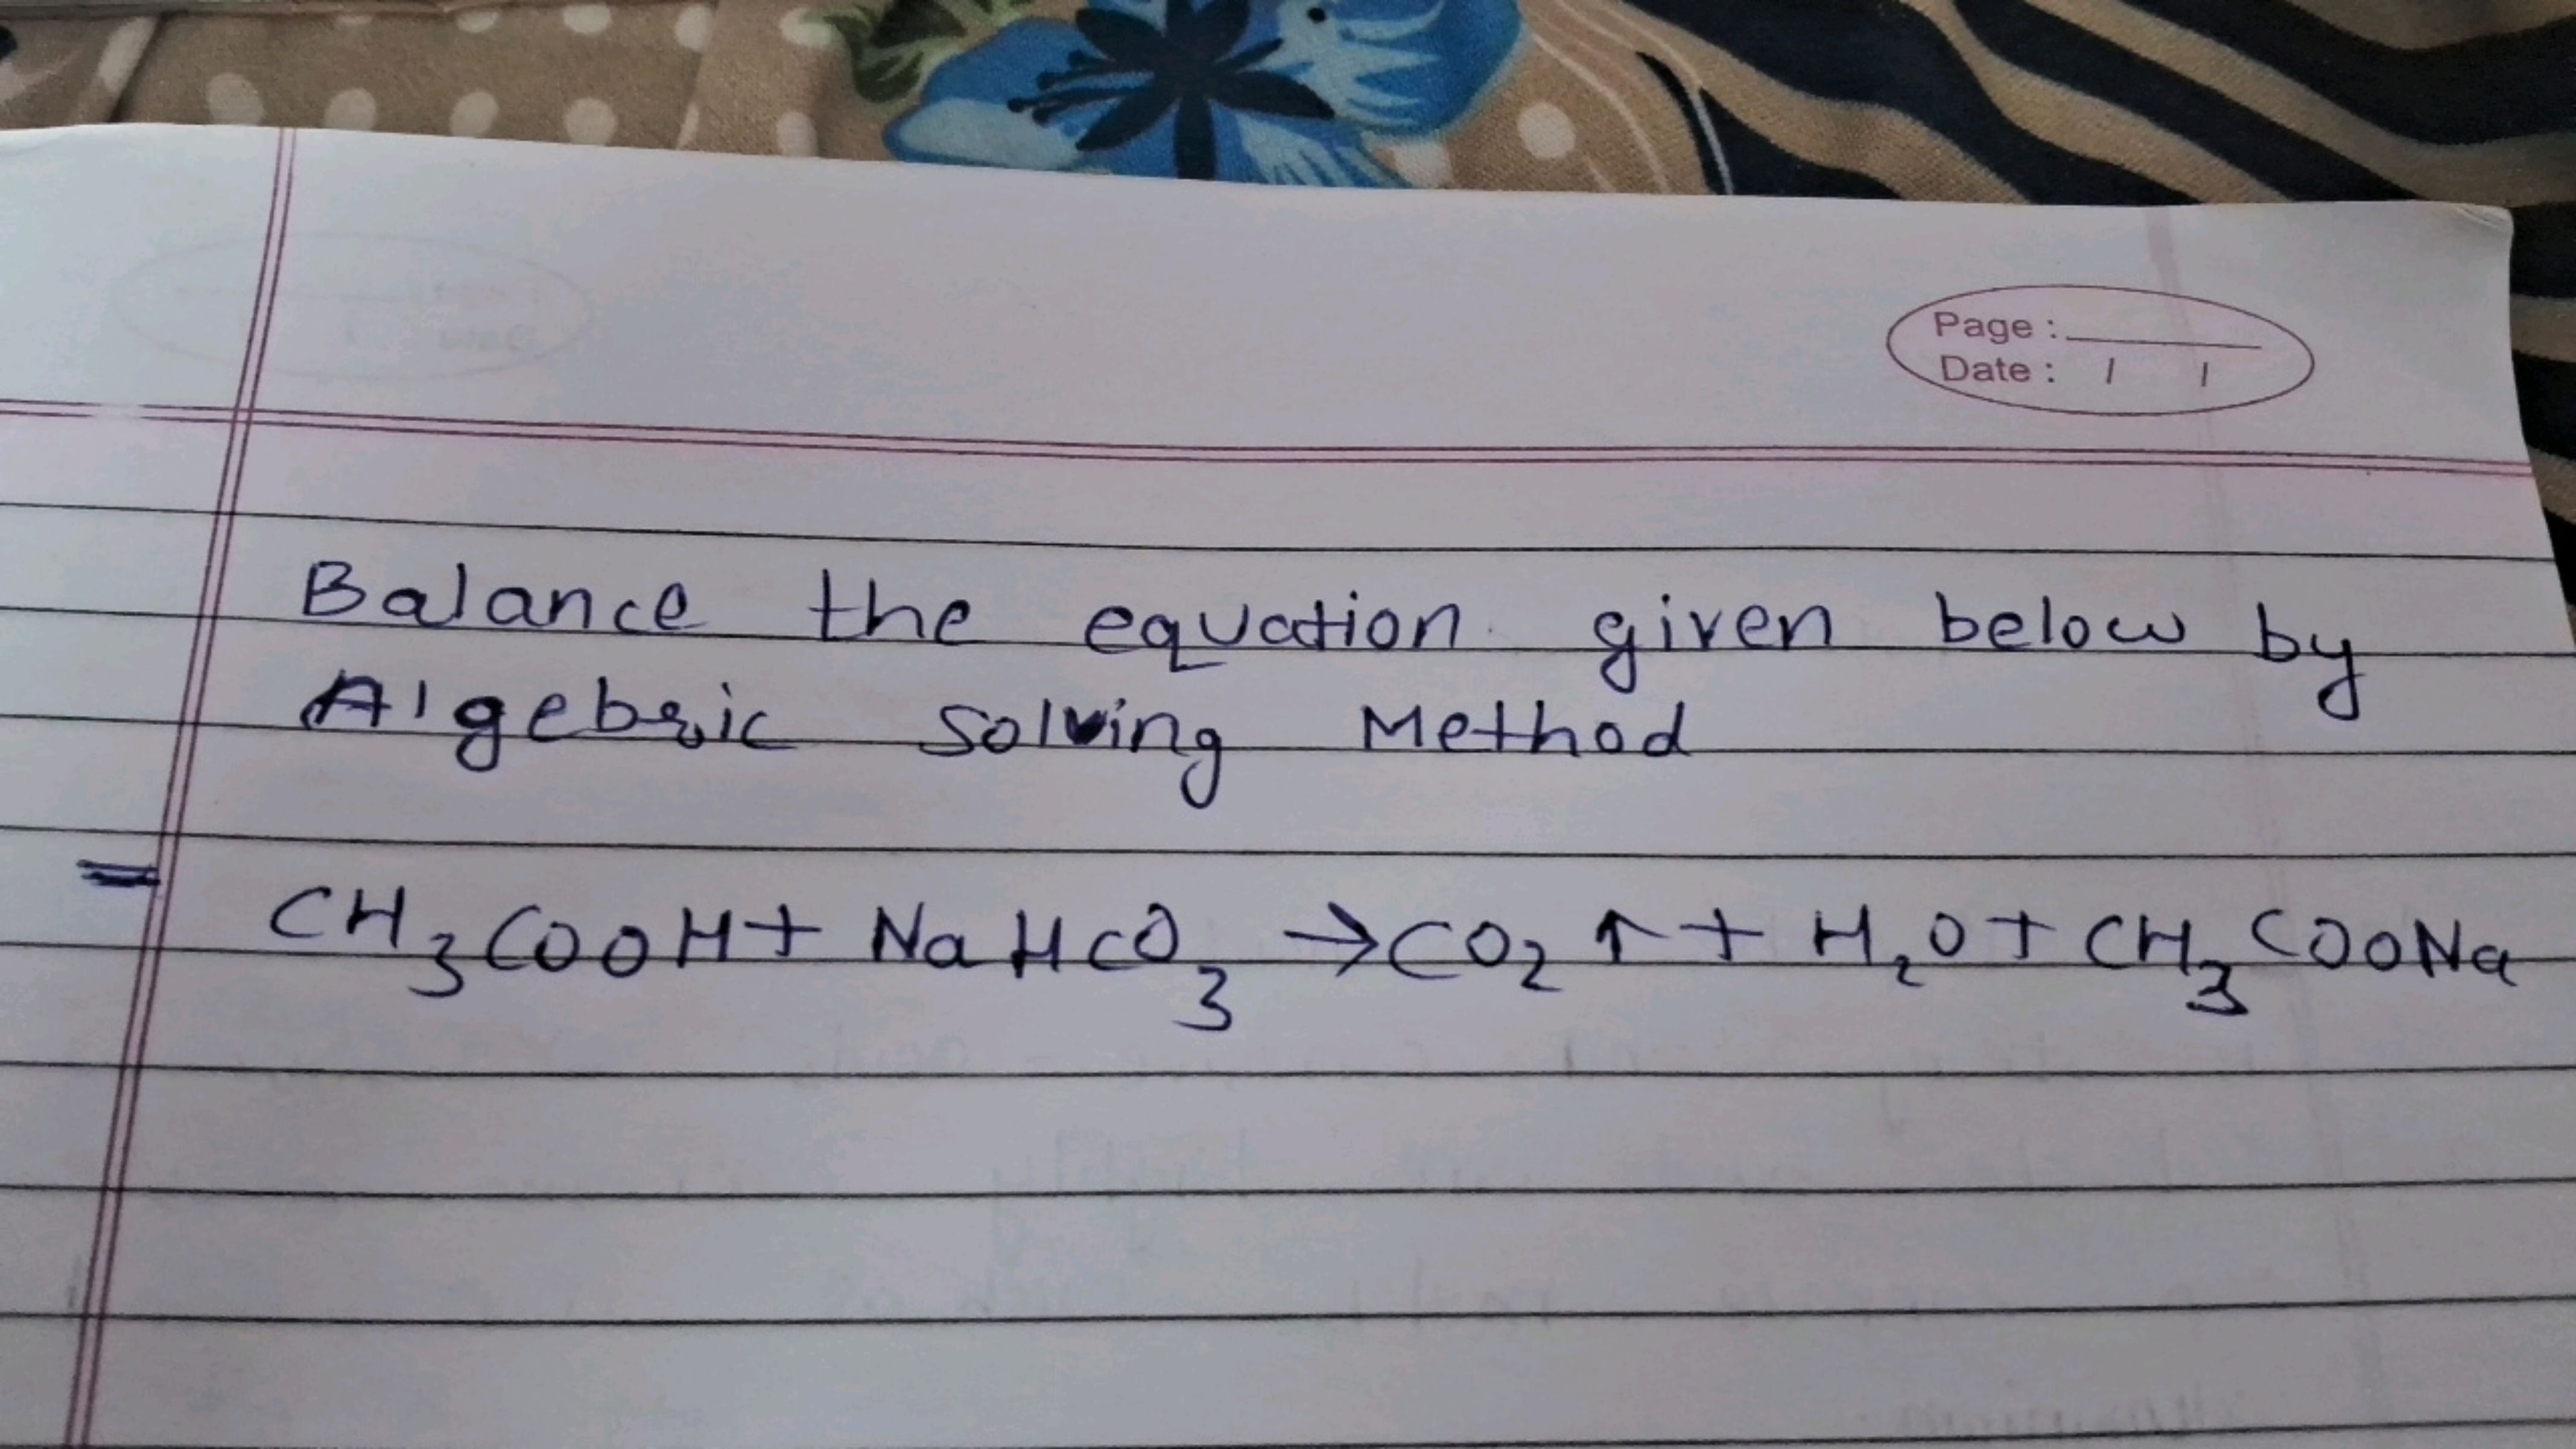 Page :
Date : / /
Balance the equation given below by
Algebric solving Method
= CH₃COOH + NaHCO₃ → CO₂ ↑ + H₂O + CH₃COONa